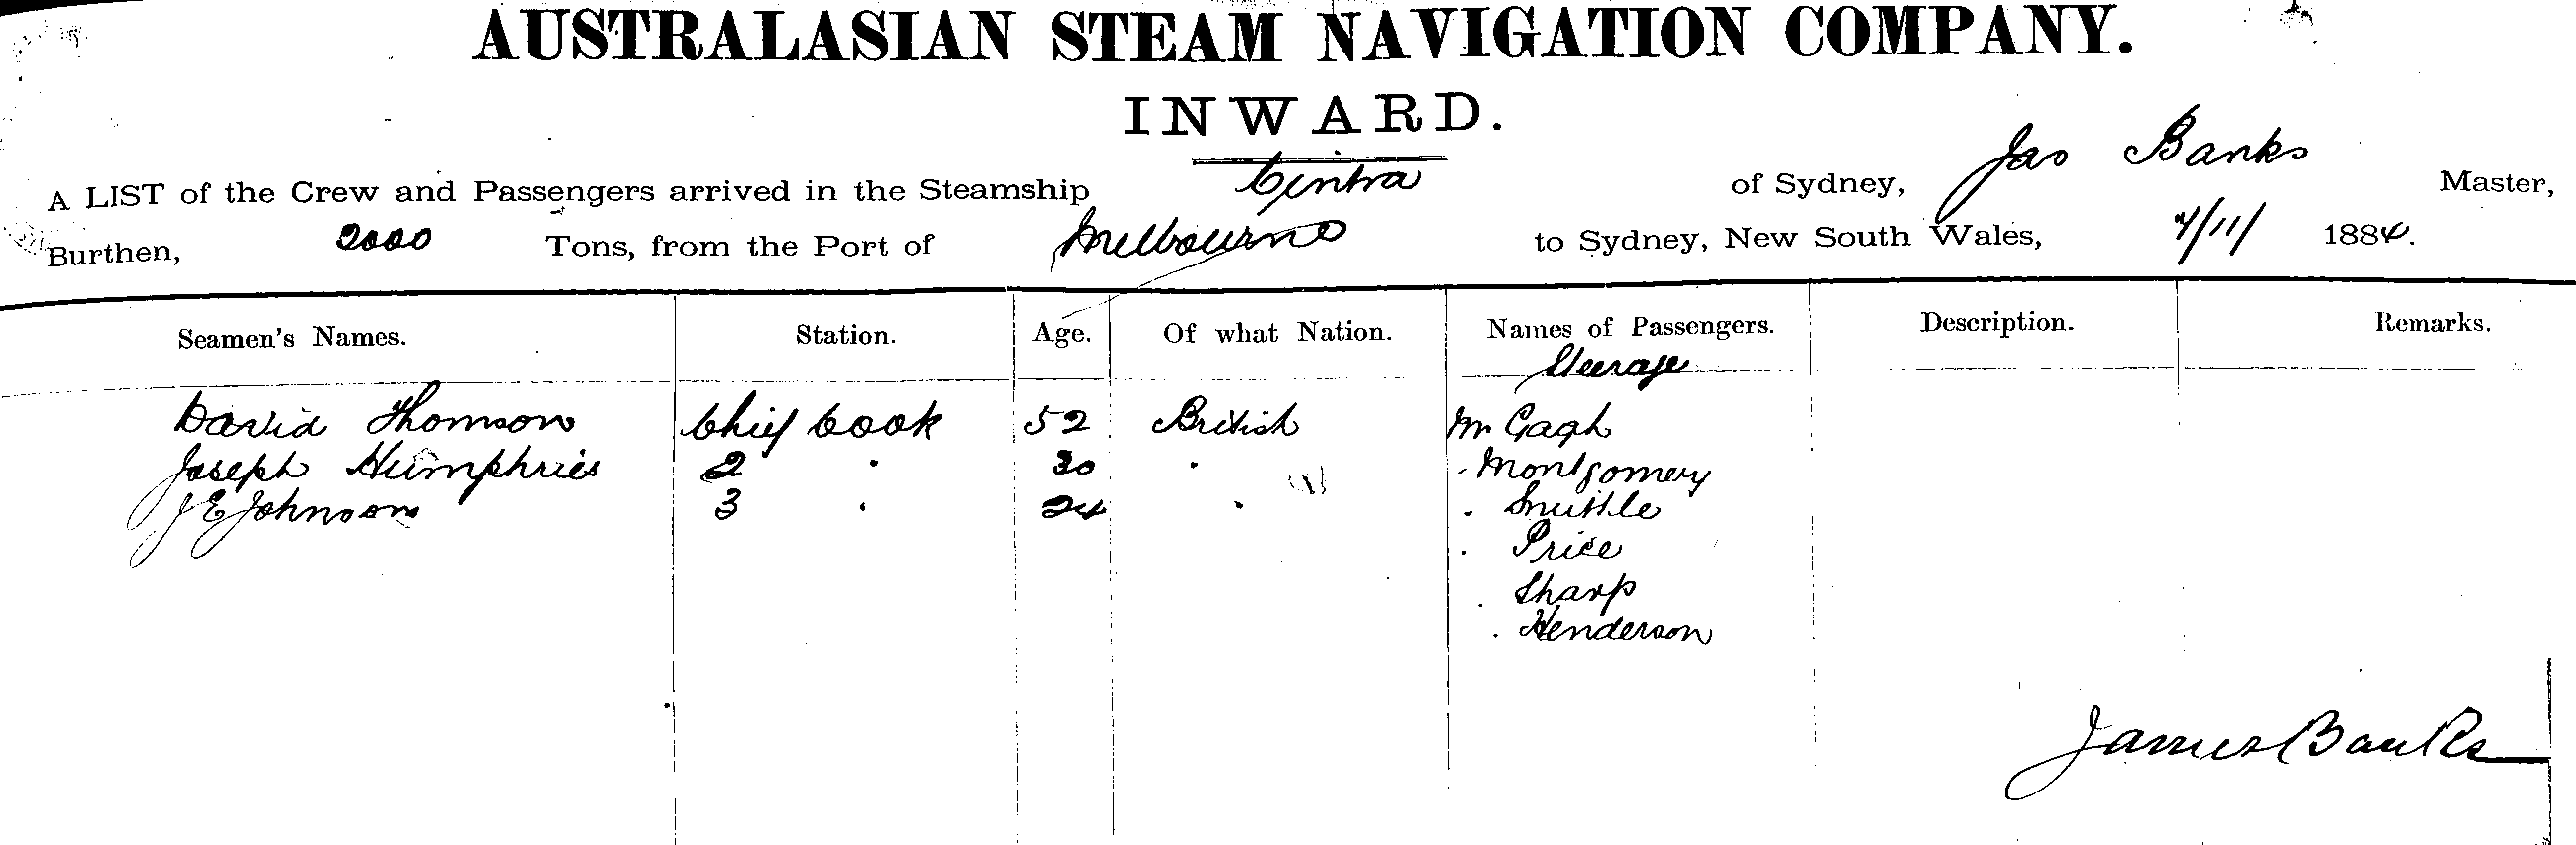 AUSTRALASIAN STEAM NAVIGATION COMPANY.
INWARD.
A LIST of the Crew and Passengers arrived in the Steamship Cintra of Sydney, Jas Banks Master,
Burthen, 2000 Tons, from the Port of Melbourne to Sydney, New South Wales, 7/11/ 1884.
Seamen's Names. Station. Age. Of what Nation. Names of Passengers. Description. Remarks.
Steerage
David Thomson Chief Cook 52 British Mr Gagh
Joseph Humphries 2 " 30 " " Montgomery
J E Johnson 3 " 24 " "
" Price
" Sharp
" Henderson
James Banks